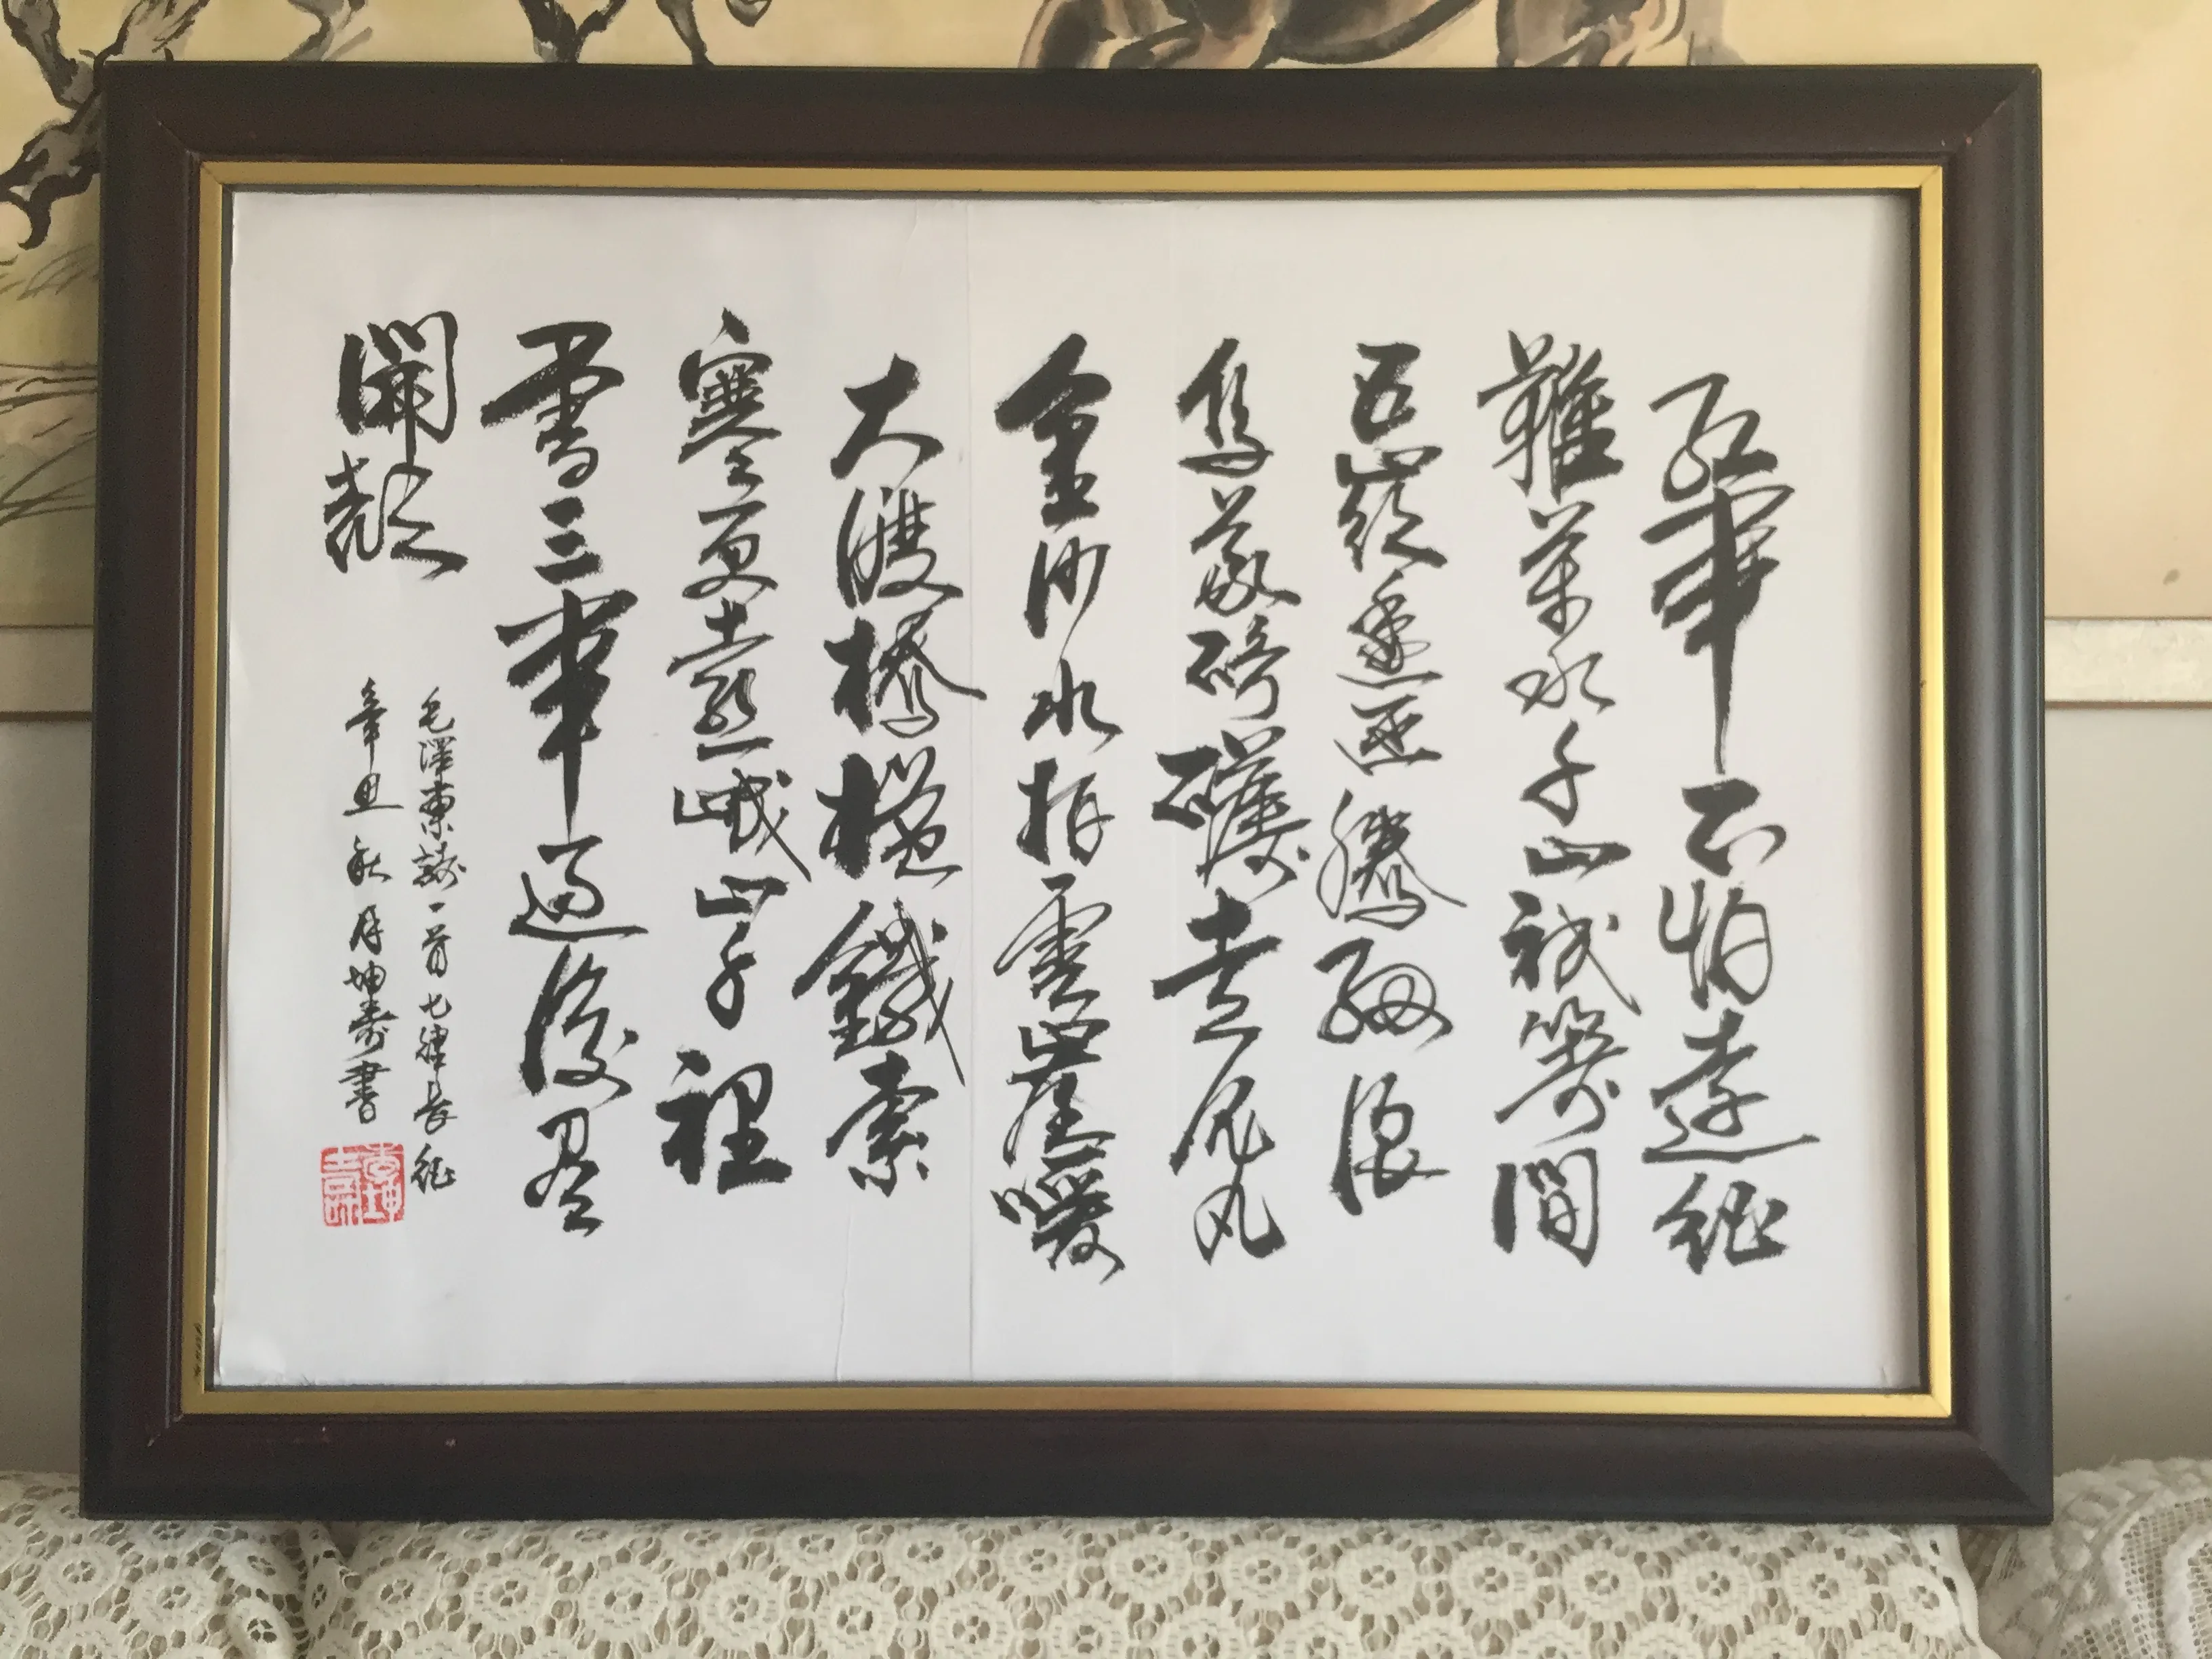 紅軍不怕遠征
難萬水千山祇等閒
五嶺逶迤騰細浪
烏蒙磅礴走泥丸
金沙水拍雲崖暖
大渡橋橫鐵索
寒更喜岷山千裡
雪三軍過後盡
開顏
毛澤東詩一首七律長征
辛丑秋月坤壽書